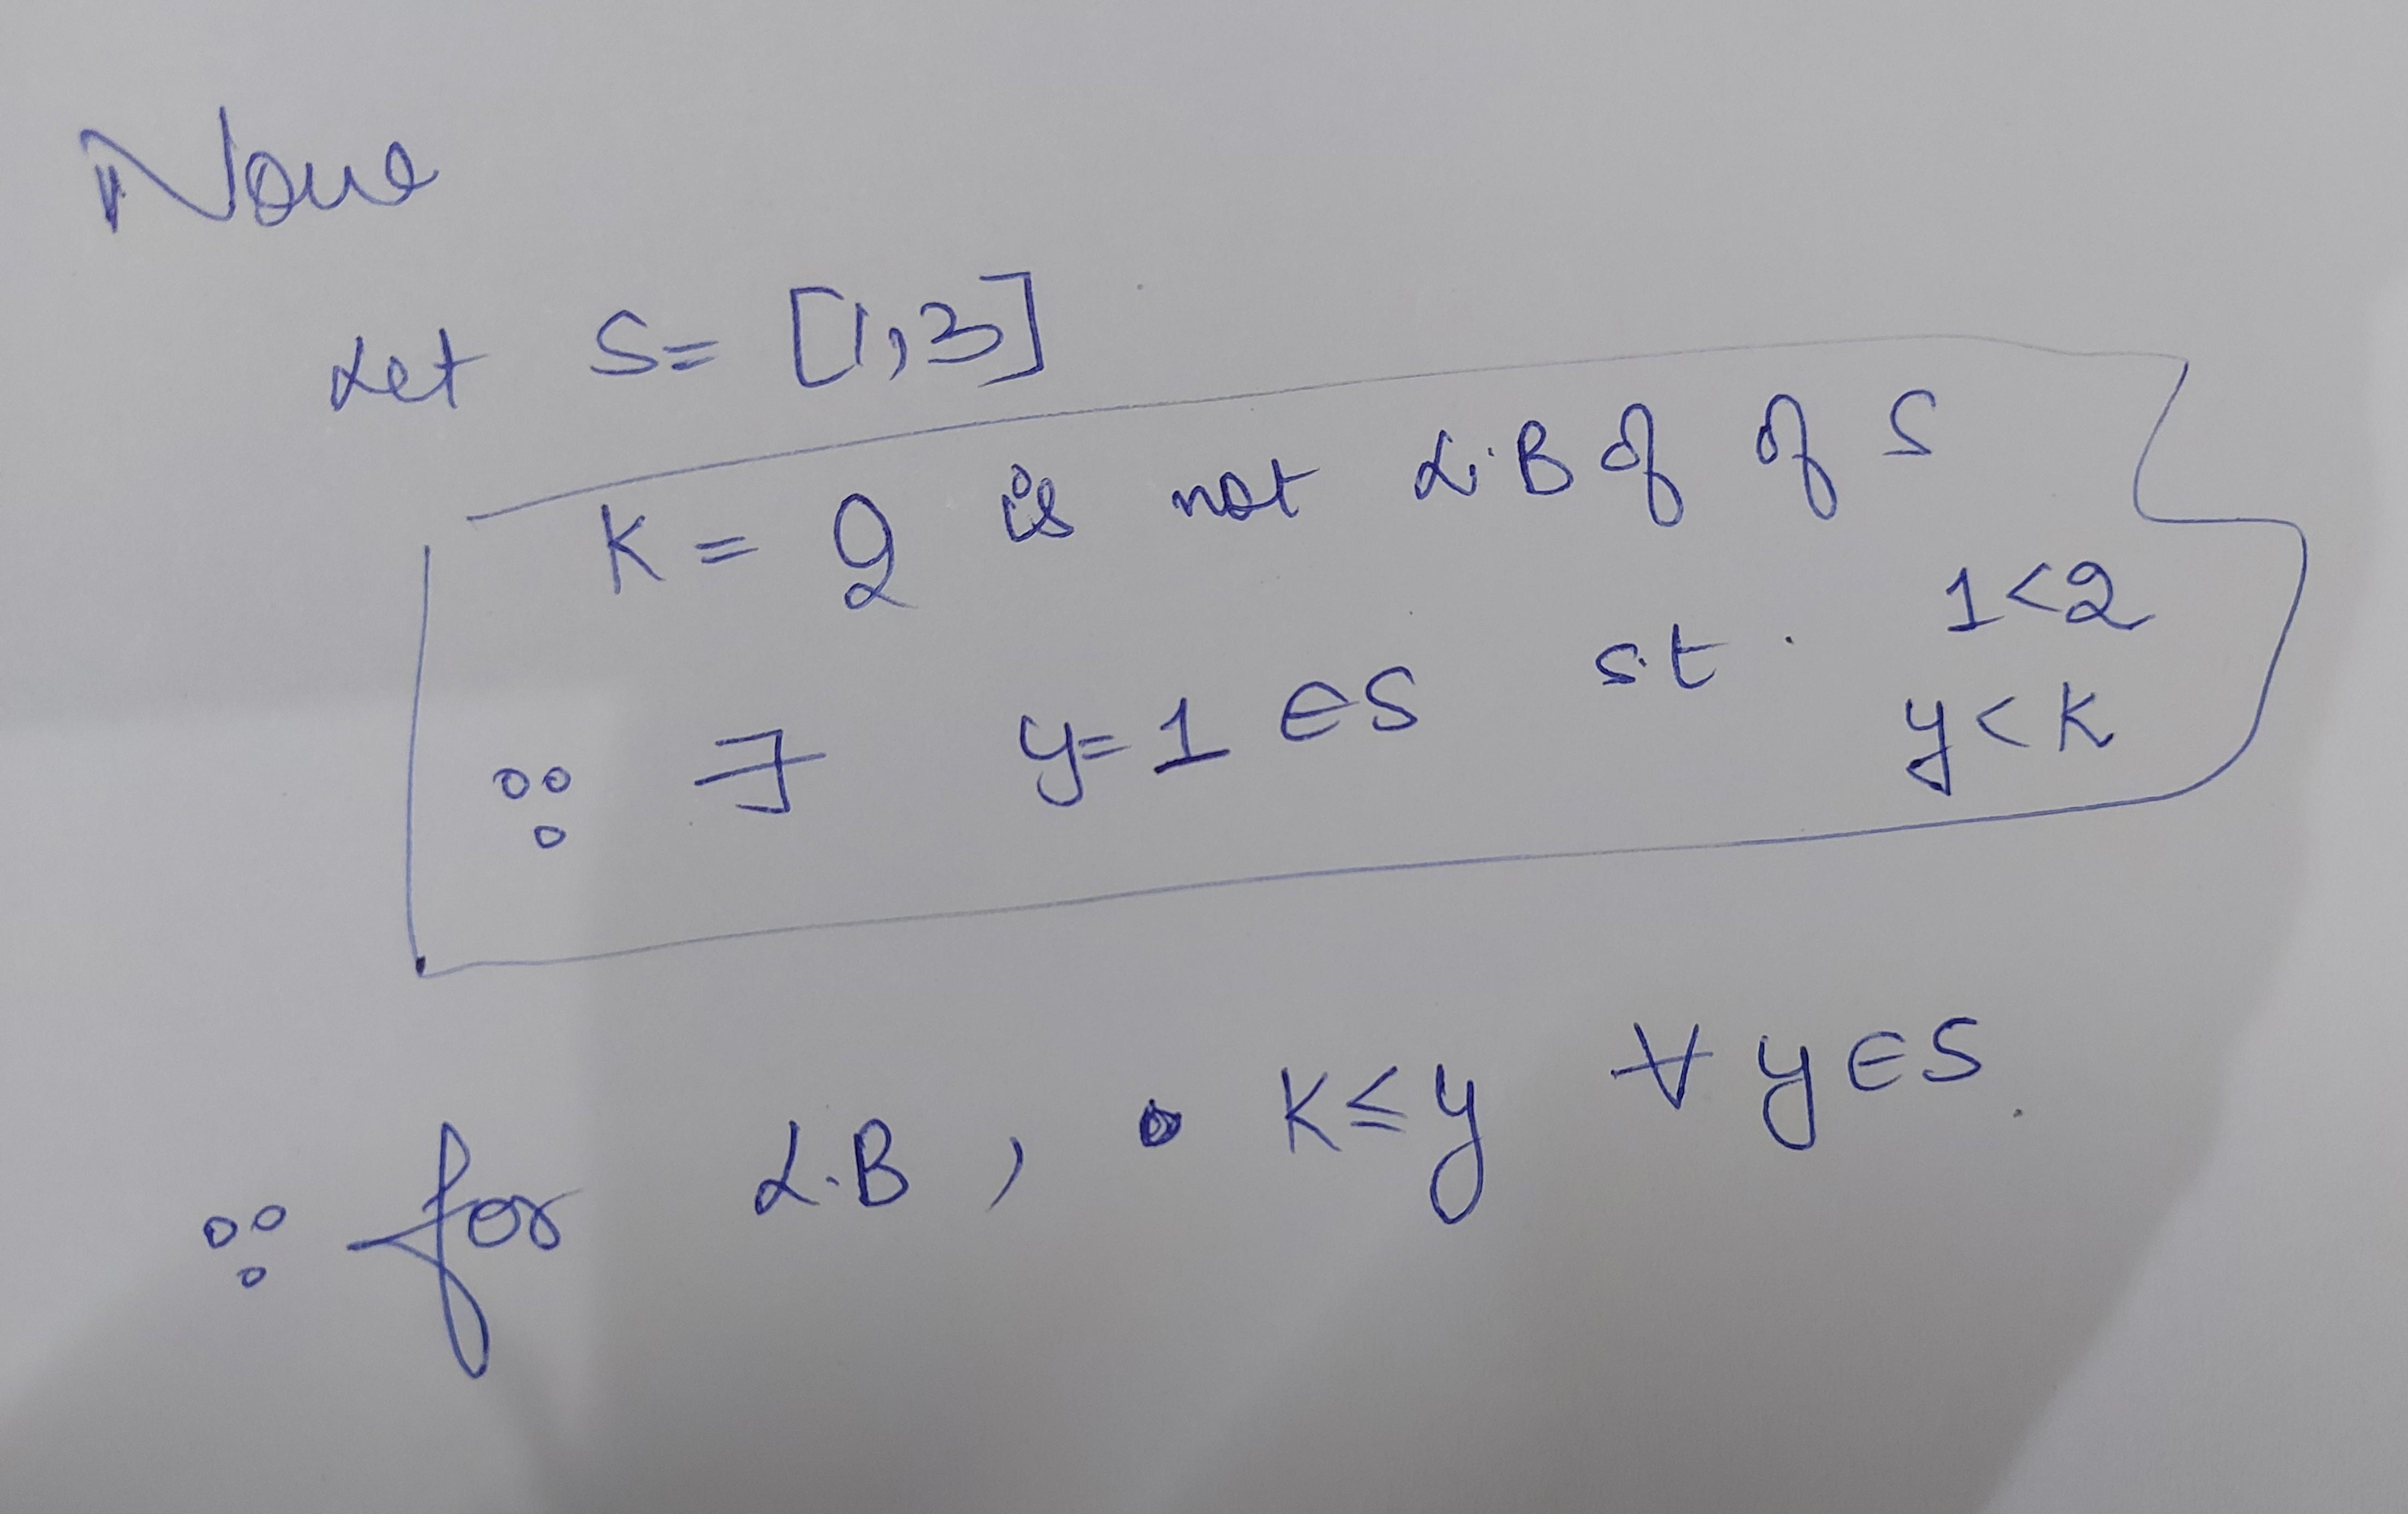 Now
Let S= [1,3]
K = 2 is not L.B of of S
1<2
∵ ∃ y=1 ∈S s.t.
y<K
∵ for L.B, K≤y ∀ y∈S.